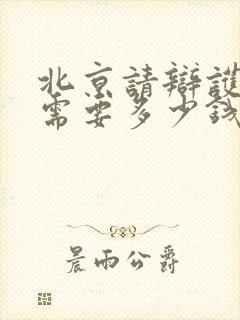 北京請辯護
需要多少錢
晨雨公爵